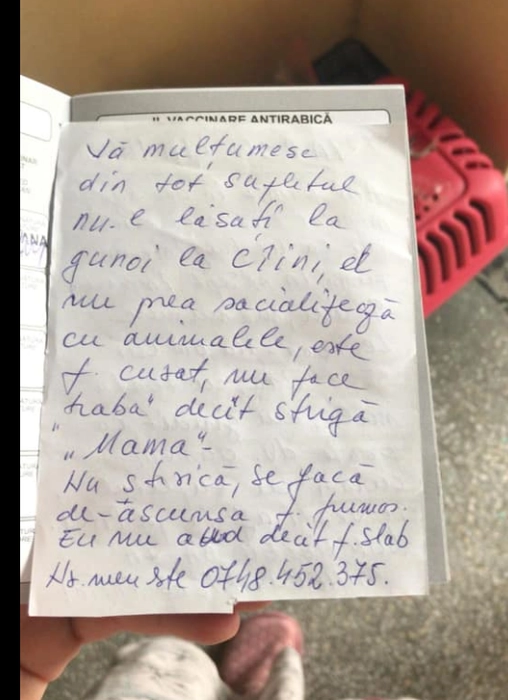 II. VACCINARE ANTIRABICĂ
Vă mulțumesc
din tot sufletul
nu-l lăsați la
gunoi la cîini, el
nu prea socializează
cu animalele, este
f. curat, nu face
"treaba" decît strigă
"Mama"-
Nu strică, se joacă
de-ascunsa f. frumos.
Eu nu aud decît f. slab
Nr. meu este 0748.452.375.